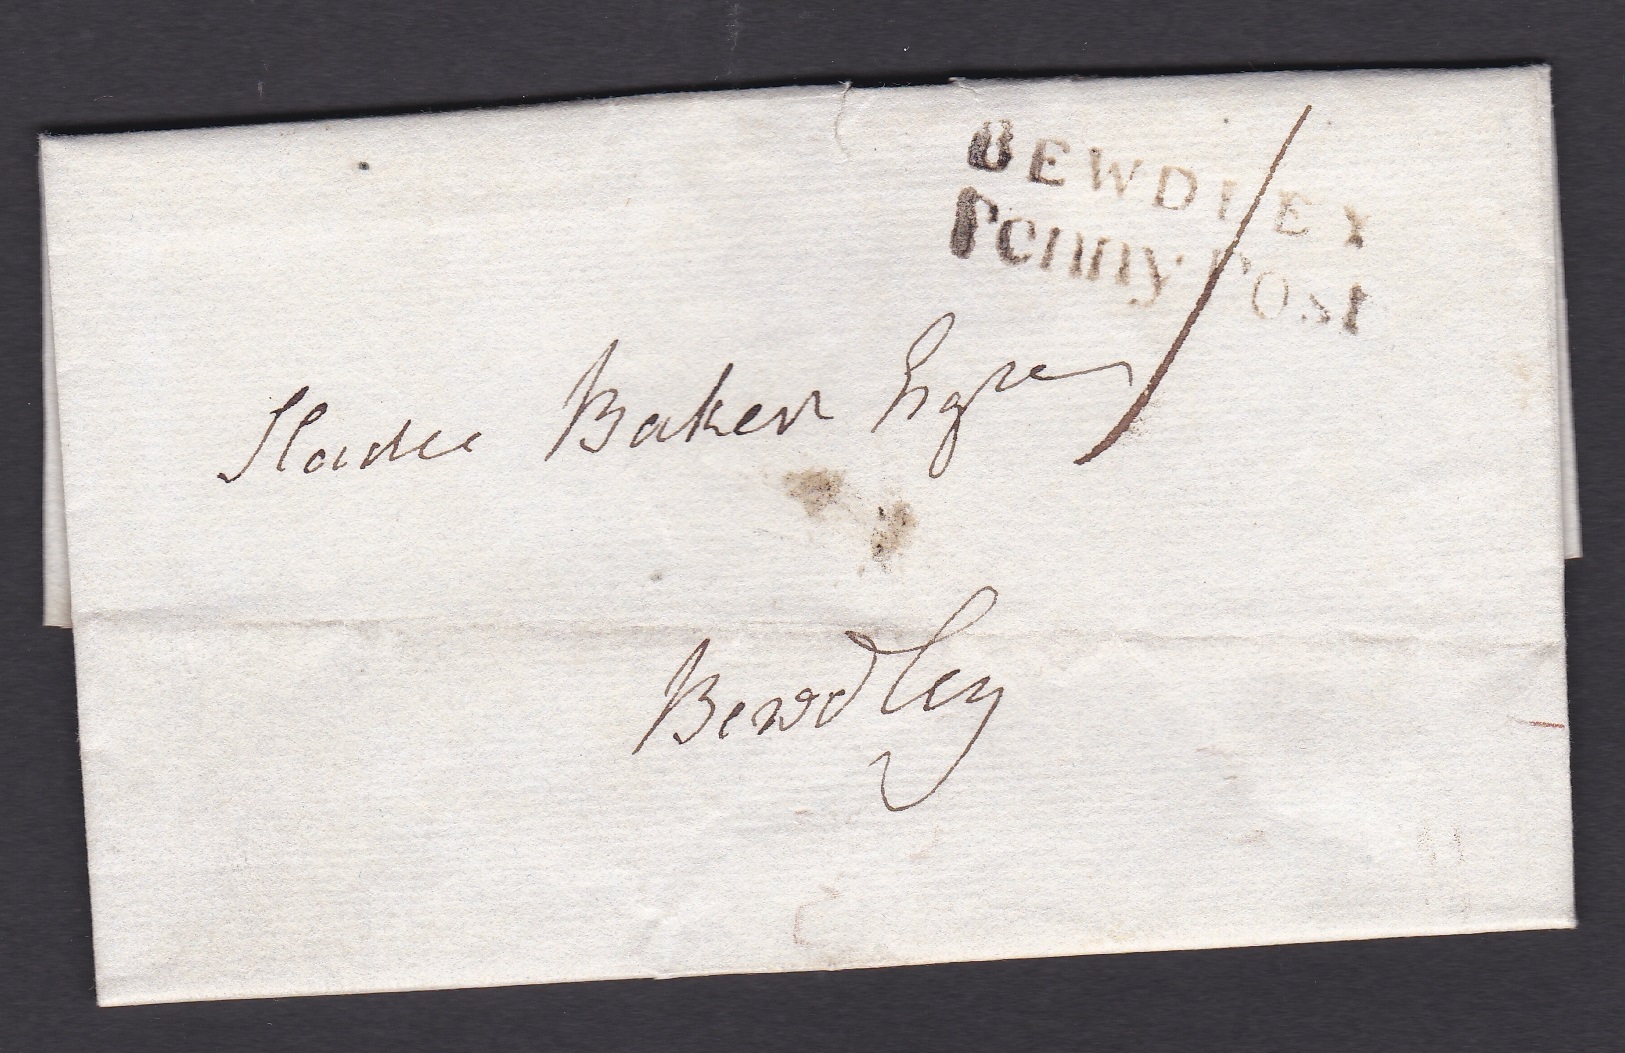 BEWDLEY
Penny Post
Slade Baker Esqre
Bewdley